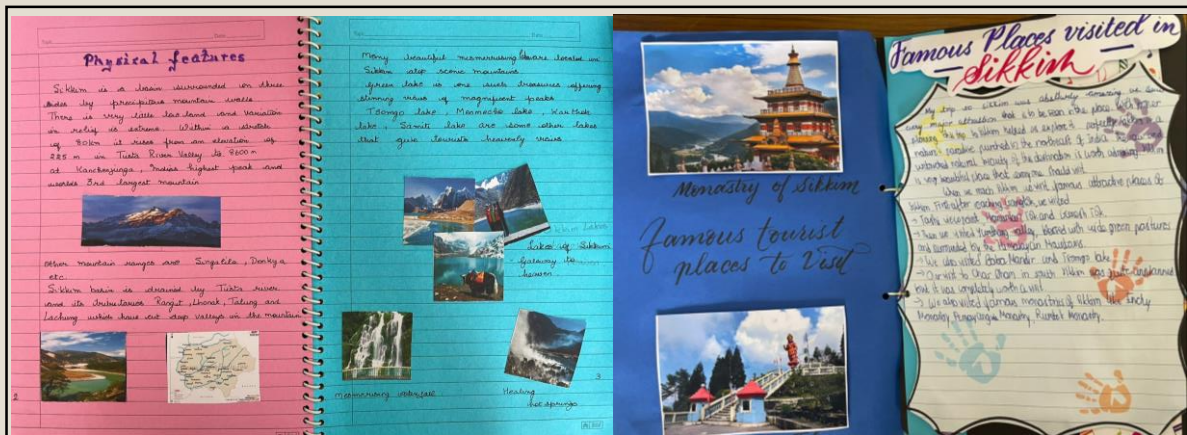 Physical features
Sikkim is a basin surrounded on three
sides by precipitous mountain walls
There is very little lowland and variation
in relief is extreme. Within a stretch
of 80km it rises from an elevation of
225 m in Tista River Valley to 8600 m
at Kanchenjunga, Indias highest peak and
worlds 3rd largest mountain
other mountain ranges are Singalila, Donkya
etc.
Sikkim basin is drained by Tista river
and its tributaries Rangit, Lhonak, Talung and
Lachung which have cut deep valleys in the mountain
2
Many beautiful mesmerising are located in
Sikkim atop scenic mountains.
Green lake is one such treasures offering
stunning views of magnificent peaks
Tsomgo lake, Menmecho lake, Kathok
lake, Samiti lake are some other lakes
that give tourists heavenly views
Lakes of Sikkim
- Gateway to
heaven.
Mesmerising waterfall
Healing
hot springs
3
Monastry of Sikkim
Famous tourist
places to Visit
Famous Places visited in
Sikkim
My trip to Sikkim was absolutely amazing we
every major attraction that is to be seen in the place. With proper
this trip to Sikkim helped us explore it perfectly. Sikkim is a
nature's paradise in the northeast of India
untouched natural beauty of the destination is worth
is very beautiful place that everyone should visit
When we reach Sikkim we visit famous attractive places of
Sikkim First after reaching Gangtok, we visited
→ Tashi viewpoint, Hanuman Tok and Ganesh Tok.
→ Then we visited Yumthang valley, blessed with wide green pastures
and surrounded by the Himalayan Mountains.
→ We also visited Baba Mandir and Tsomgo lake
→ Our visit to Char Dham in south Sikkim was quite unplanned
but it was completely worth a visit
→ We also visited famous monasteries of Sikkim like Enchy
Monastery, Monastery, Rumtek Monastry.